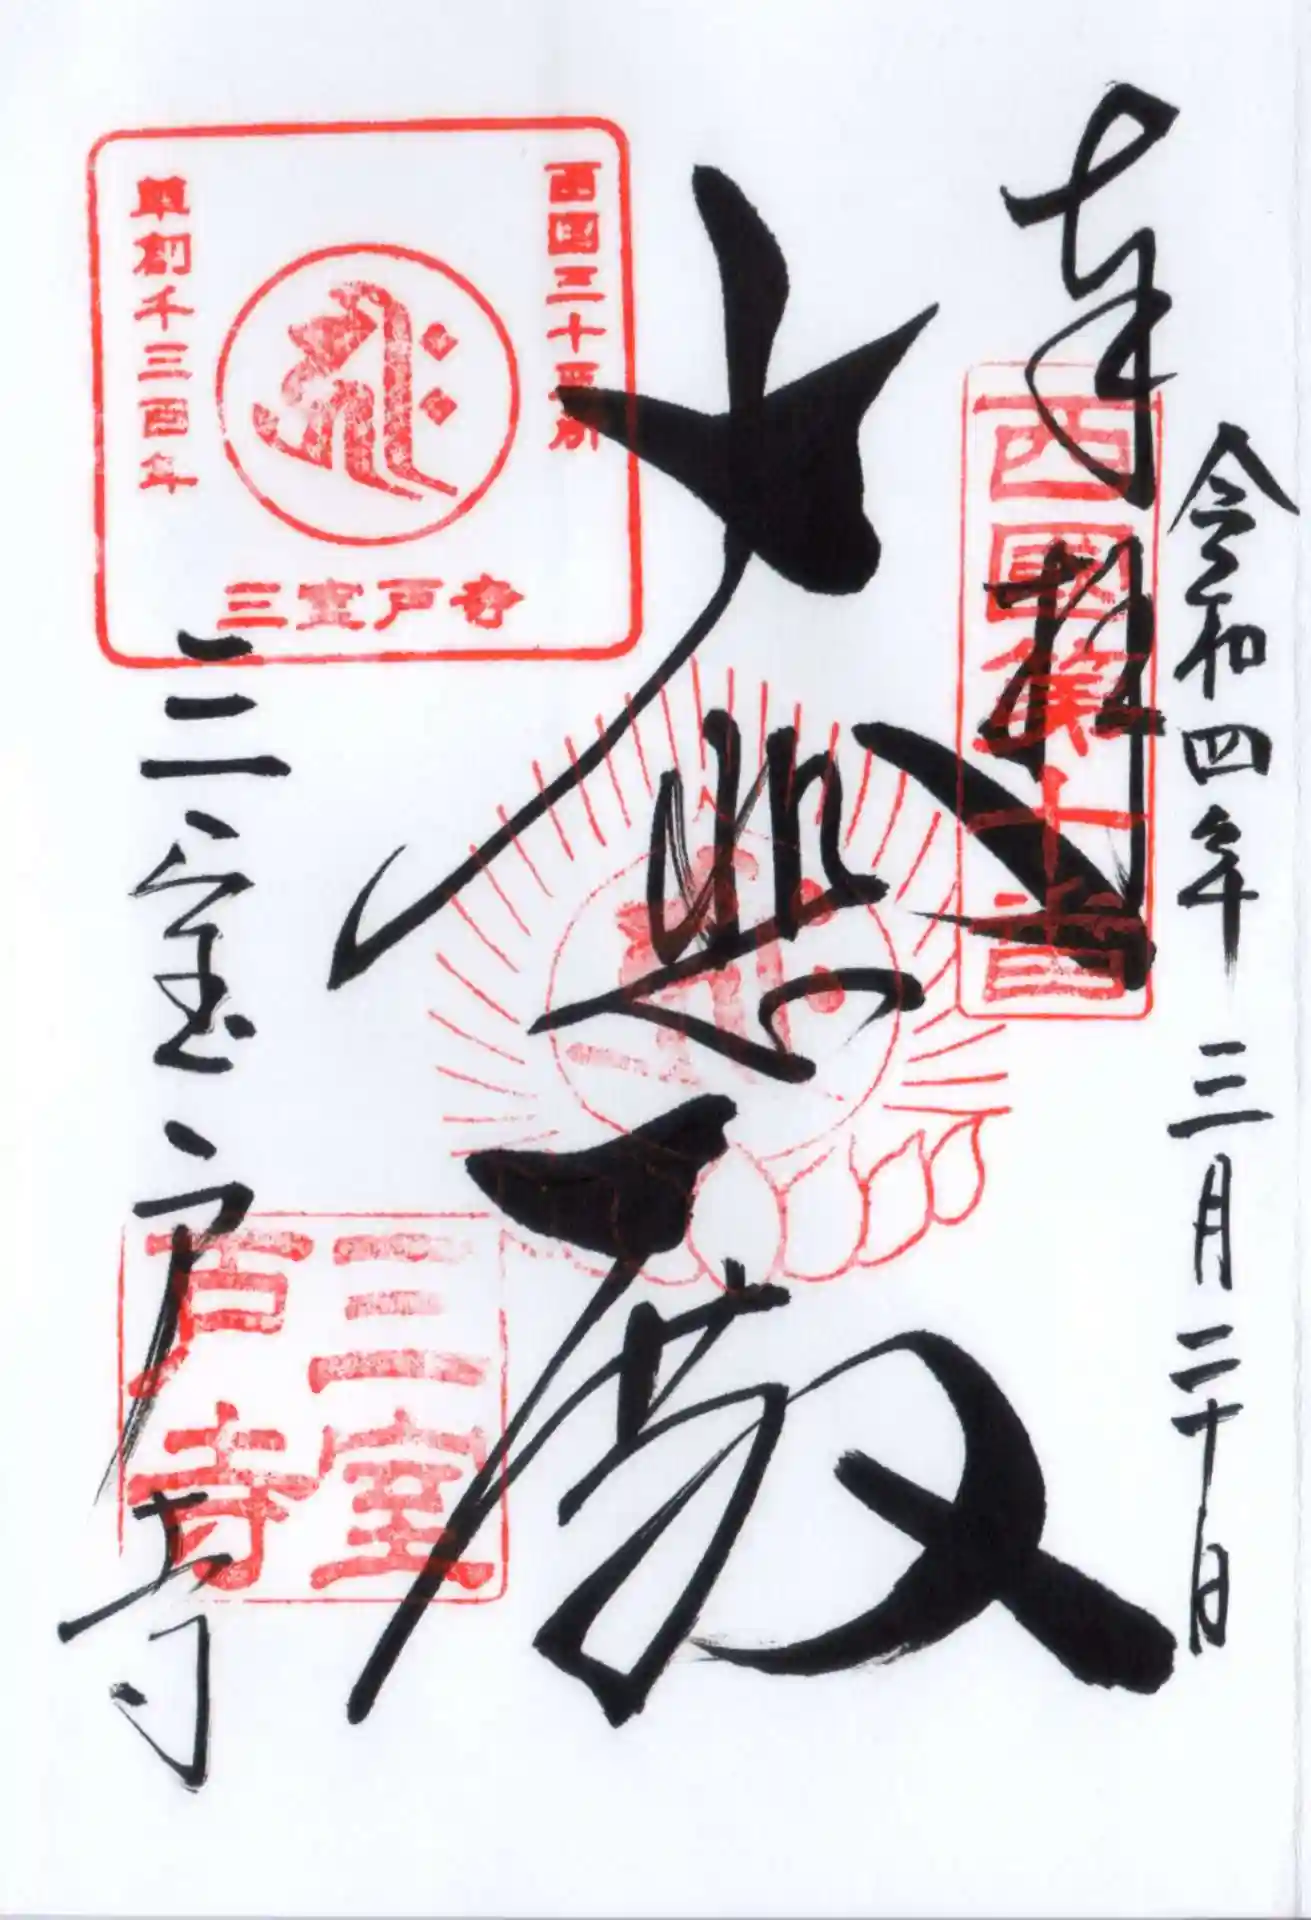 奉拝
令和四年 三月二十日
西國第十番
大悲殿
西国三十三所
草創千三百年
三室戸寺
三室戸寺
三室戸寺